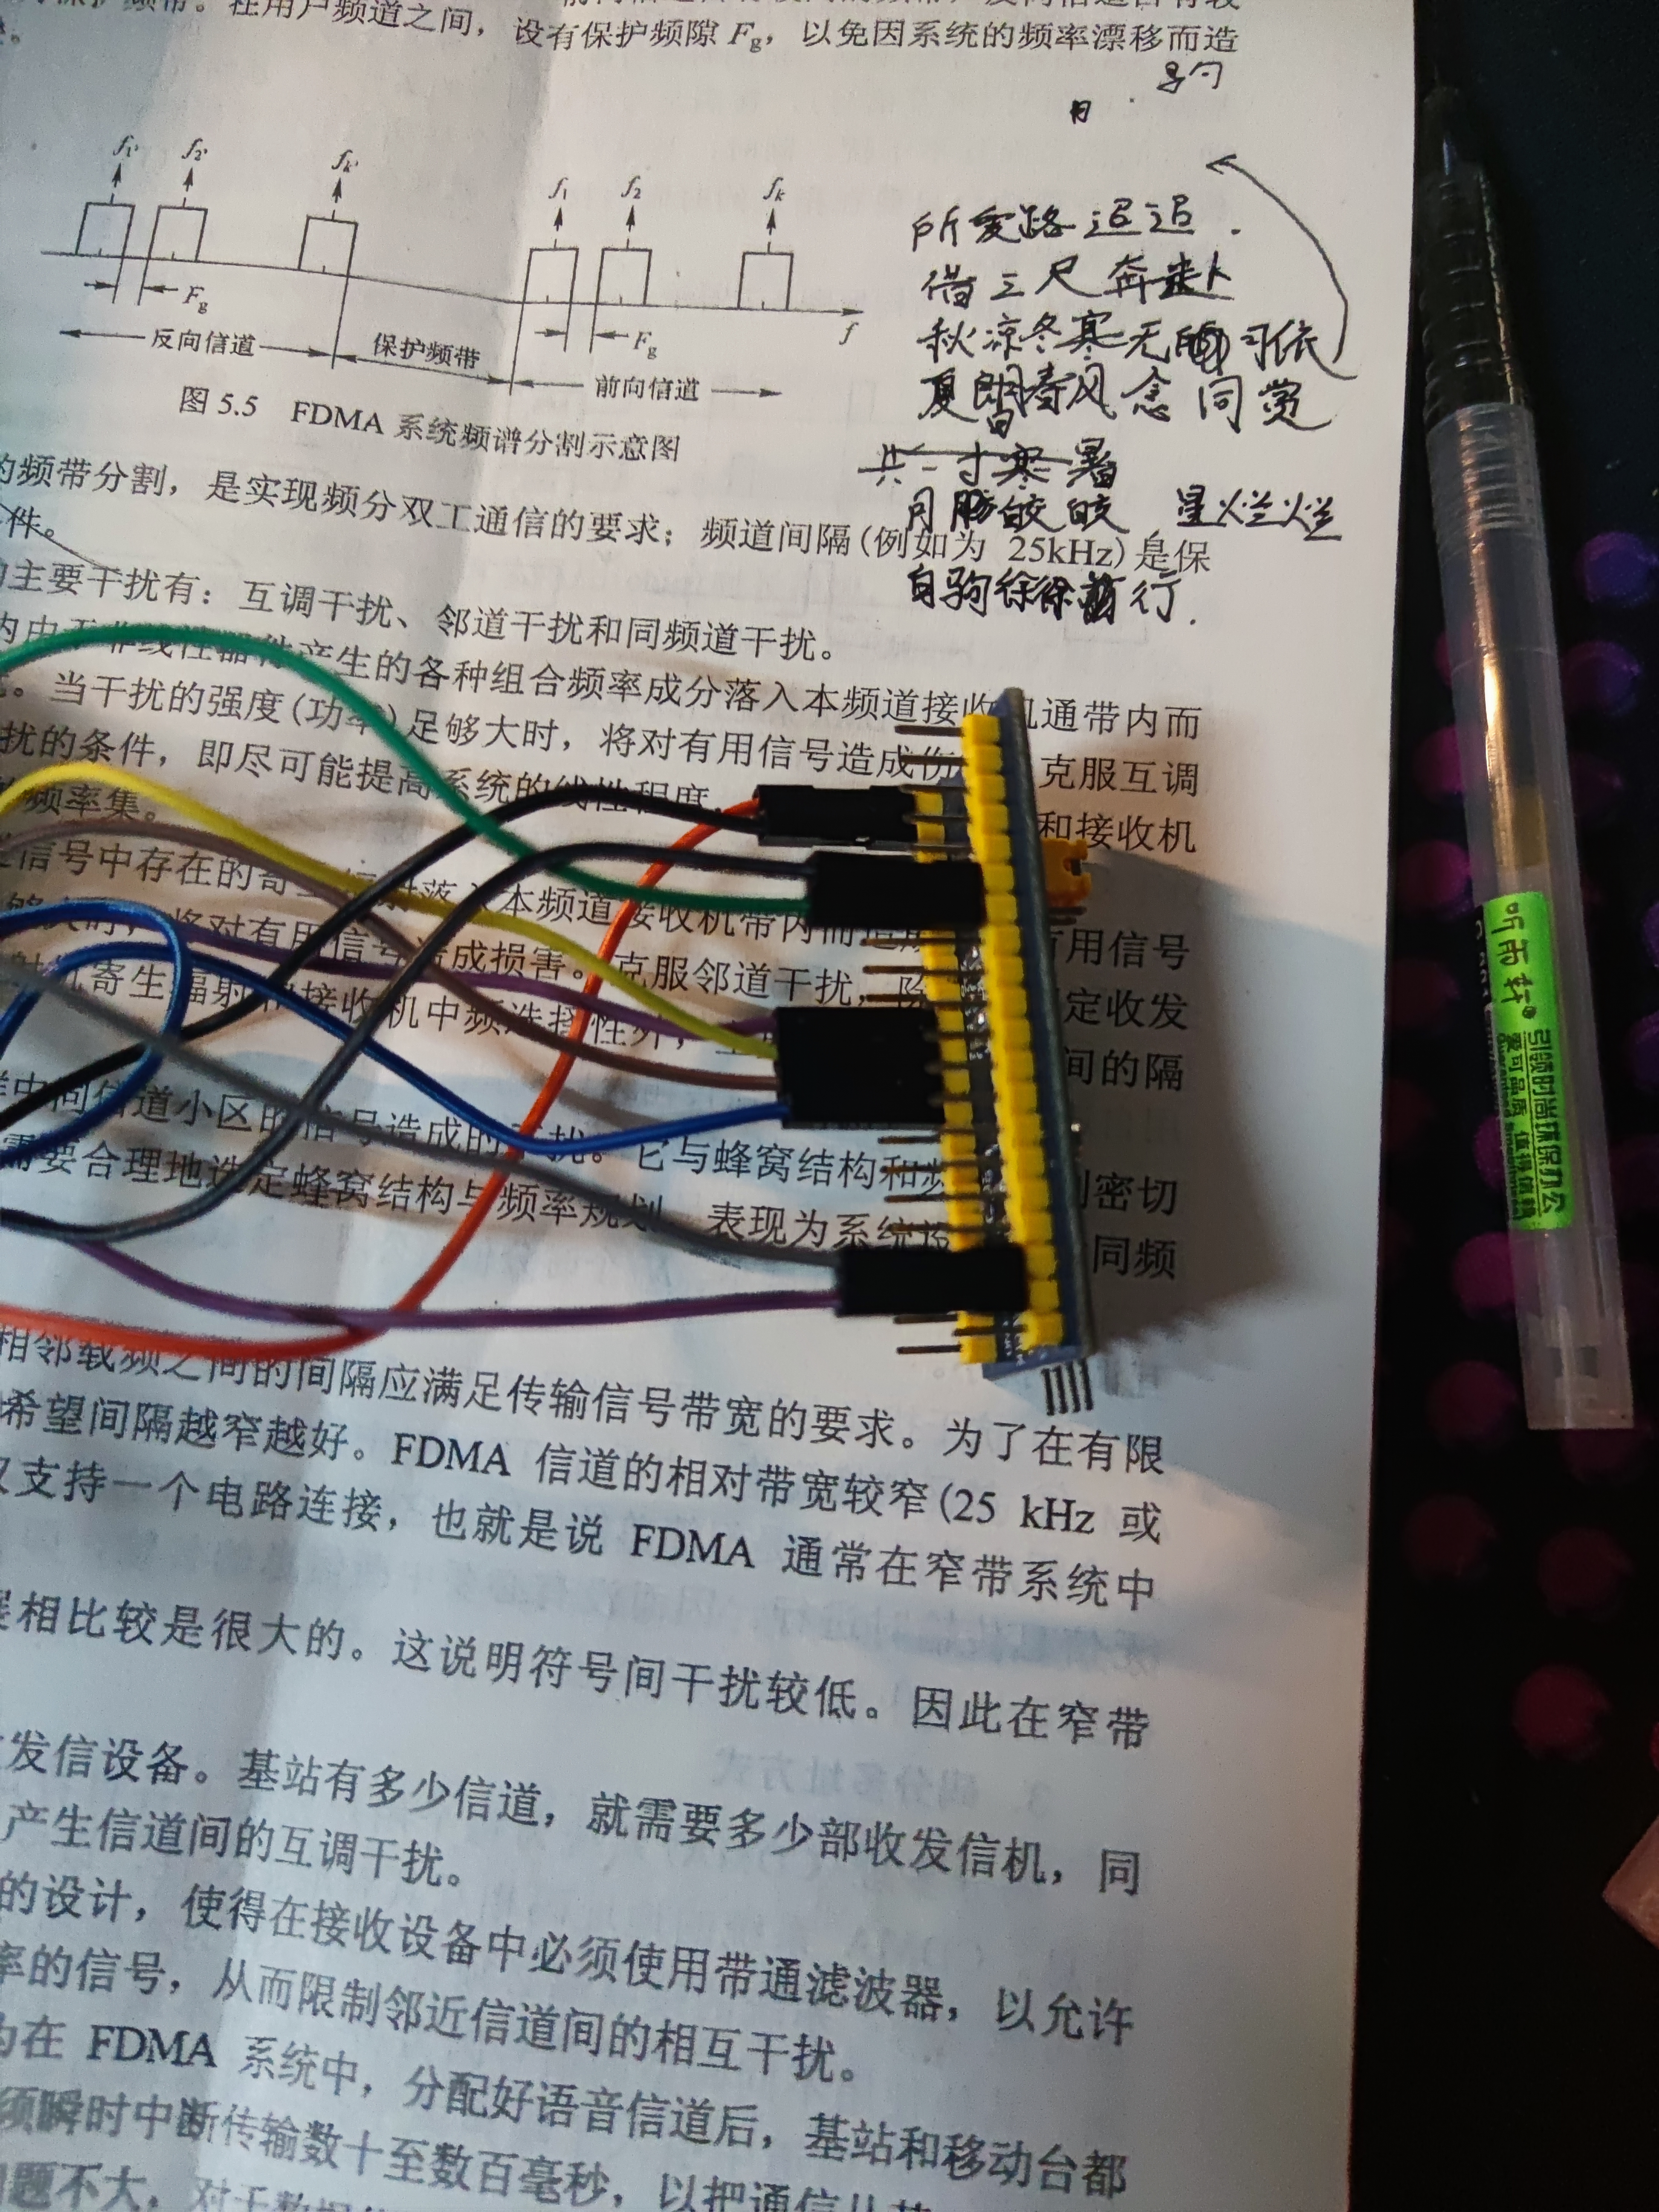 保护频带。在用户频道之间，设有保护频隙 Fg，以免因系统的频率漂移而造
f1' f2' fk' f1 f2 fk
Fg Fg f
反向信道 保护频带 前向信道
图 5.5 FDMA 系统频谱分割示意图
所爱路迢迢.
借三尺奔赴
秋凉冬寒无可依
夏朗春风念同赏
共一寸寒暑
月胧皎皎 星烂烂
白驹徐徐前行.
的频带分割，是实现频分双工通信的要求；频道间隔(例如为 25kHz)是保
件。
主要干扰有：互调干扰、邻道干扰和同频道干扰。
内由于非线性器件产生的各种组合频率成分落入本频道接收机通带内而
。当干扰的强度(功率)足够大时，将对有用信号造成伤 克服互调
扰的条件，即尽可能提高系统的线性程度，
频率集。 和接收机
信号中存在的寄 落入本频道接收机带内而造成 有用信号
够大时，将对有用信号造成损害。克服邻道干扰，除 定收发
射机寄生辐射和接收机中频选择性外， 间的隔
中同信道小区的信号造成的干扰。它与蜂窝结构和频 密切
需要合理地选定蜂窝结构与频率规划，表现为系统设 同频
相邻载频之间的间隔应满足传输信号带宽的要求。为了在有限
希望间隔越窄越好。FDMA 信道的相对带宽较窄(25 kHz 或
仅支持一个电路连接，也就是说 FDMA 通常在窄带系统中
相比较是很大的。这说明符号间干扰较低。因此在窄带
发信设备。基站有多少信道，就需要多少部收发信机，同
产生信道间的互调干扰。
的设计，使得在接收设备中必须使用带通滤波器，以允许
率的信号，从而限制邻近信道间的相互干扰。
为在 FDMA 系统中，分配好语音信道后，基站和移动台都
须瞬时中断传输数十至数百毫秒，以把通信从某
问题不大，对于数据
听雨轩®
引领时尚环保办公
爱可品质 值得信赖